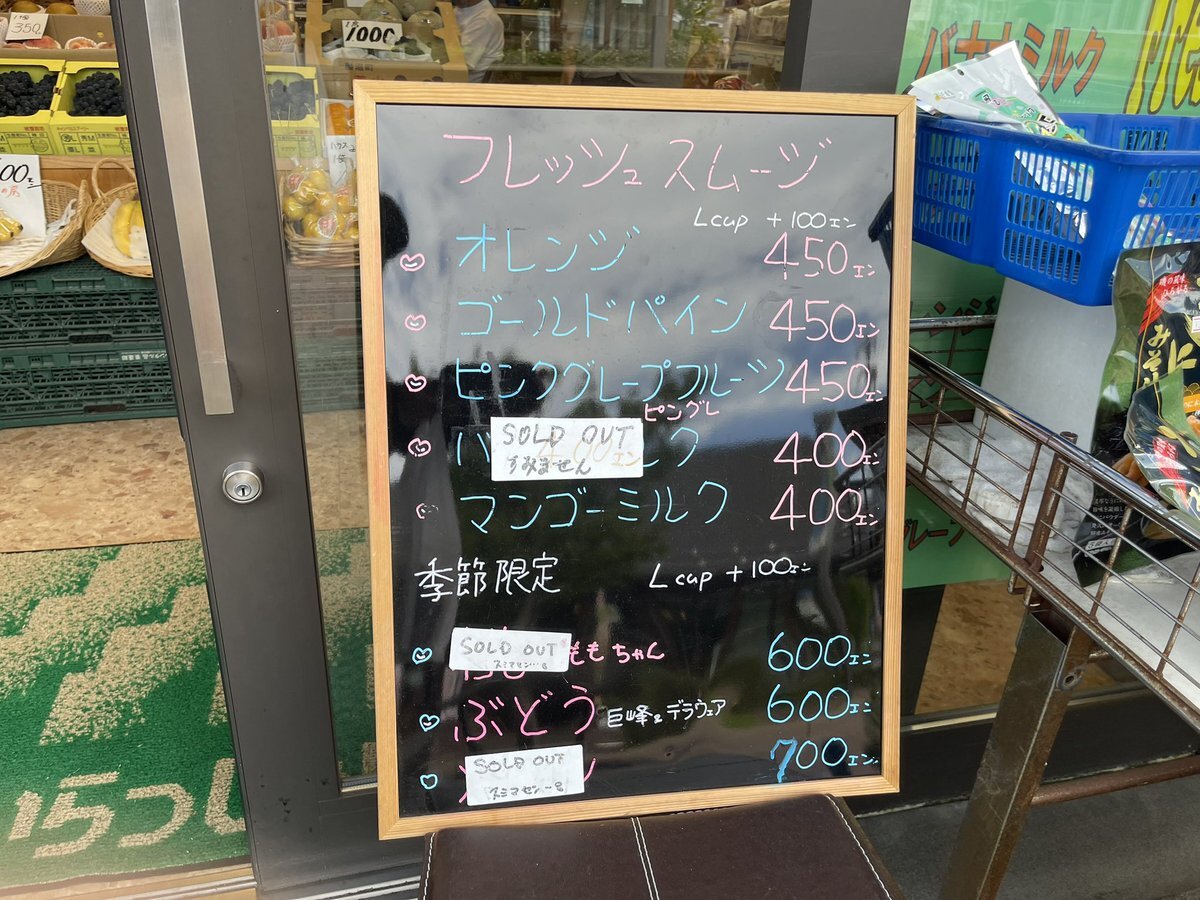 1コ350
1コ
1000
バナナミルク
フレッシュスムージ
Lcup +100エン
オレンジ 450エン
ゴールドパイン 450エン
ピンクグレープフルーツ 450エン
ピングレ
SOLD OUT
すみません
ミルク 400エン
マンゴーミルク 400エン
季節限定 Lcup +100エン
SOLD OUT
スミマセン…
ももちゃん 600エン
ぶどう 巨峰&デラウェア 600エン
SOLD OUT
スミマセン
700エン
いらっし